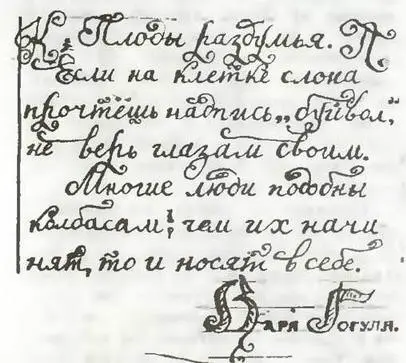 К. Плоды раздумья. П.
Если на клетке слона
прочтёшь надпись „буйвол,“
не верь глазам своим.
Многие люди подобны
колбасам; чем их начи
нят, то и носят в себе.
Варя Гогуля.